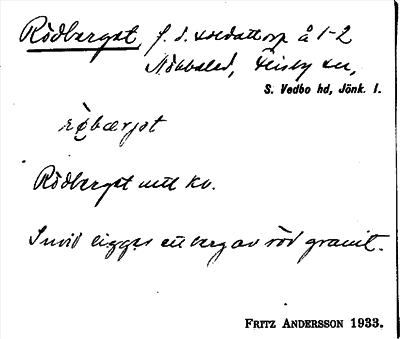 Rödberget, f. d. soldattorp å 1-2
Nöbbeled, Flisby sn,
S. Vedbo hd, Jönk. l.
Rödberget utt kv.
Invid ligger ett berg av röd granit.
FRITZ ANDERSSON 1933.